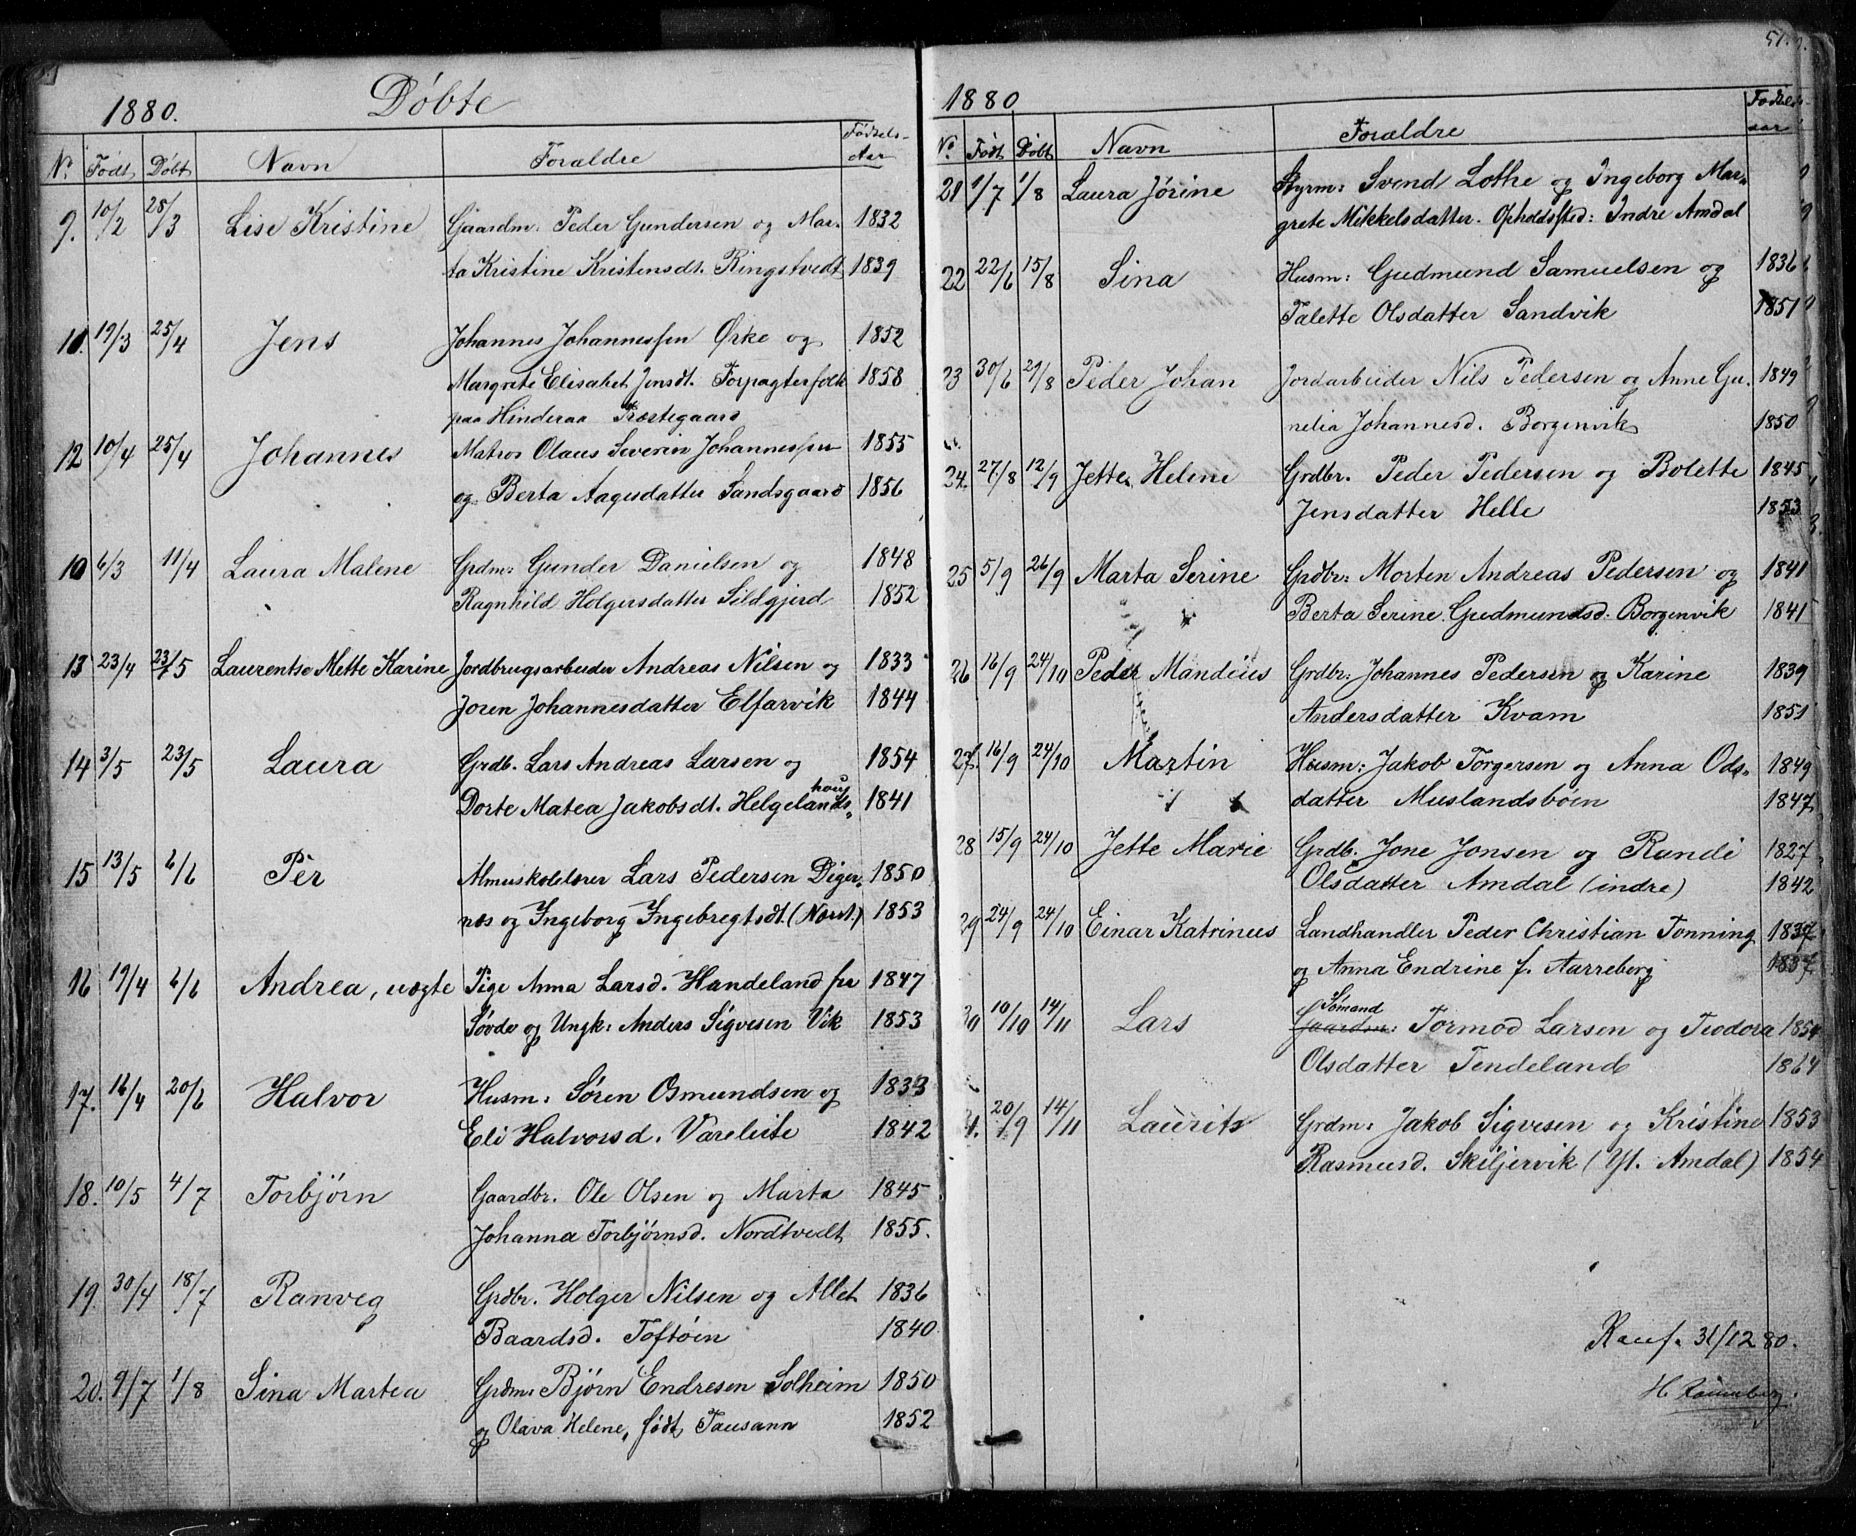 1880. Døbte
No. Født Døbt Navn Forældre Fødsels-
Aar
9. 10/2 28/3 Lise Kristine Gaardm: Peder Gundersen og Mar- 1832
ta Kristine Kristensdt. Ringstvedt 1839
10. 19/3 25/4 Jens Johannes Johannessen Ørke og 1852
Margrete Elisabet Jensdt. Forpagterfolk 1858
paa Hinderaa Præstegaard
12 10/4 25/4 Johannes Matros Olaus Severin Johannessen 1855
og Berta Aagesdatter Sandsgaard 1856
10 6/3 11/4 Laura Malene Grdm: Gunder Danielsen og 1848
Ragnhild Holgersdatter Sildgjerd 1852
13 23/4 23/5 Laurentse Mette Karine Jordbrugsarbeider Andreas Nilsen og 1833
Joren Johannesdatter Elfarvik 1844
14 3/5 23/5 Laura Grdb. Lars Andreas Larsen og 1854
Dorte Matea Jakobsdt. Helgelands- 1841
15 13/5 6/6 Per Almueskolelærer Lars Pedersen Diger- 1850
næs og Ingeborg Ingebregtsdt (Nærst.) 1853
16 19/4 6/6 Andrea, uægte Pige Anna Larsd. Handeland fra 1847
Søvde og Ungk: Anders Sigvesen Vik 1853
17. 16/4 20/6 Halvor Husm: Søren Osmundsen og 1833
Eli Halvorsd. Våreleite 1842
18. 10/5 4/7 Torbjørn Gaardbr. Ole Olsen og Marta 1845
Johanna Torbjørnsd. Nordtvedt 1855.
19. 30/4 18/7 Ranveg Grdbr. Holger Nilsen og Allet 1836
Baardsd. Toftøen 1840
20. 9/7 1/8 Sina Martea Grdm: Bjørn Endresen Solheim 1850
og Olava Helene, født Tausann 1852
51.
1880
No. Født Døbt Navn Forældre Fødsels-
aar
21 1/7 1/8 Laura Jørine Styrm: Svend Lothe og Ingeborg Mar-
grete Mikkelsdatter. Opholdssted: Indre Amdal
22 22/6 15/8 Sina Husm: Gudmund Samuelsen og 1836
Talette Olsdatter Sandvik 1851
23 30/6 29/8 Peder Johan Jordarbeider Nils Pedersen og Anne Gu- 1849
nelia Johannesd. Borgenvik 1850
24. 27/8 12/9 Jette Helene Grdbr. Peder Pedersen og Bolette 1845
Jensdatter Helle 1853
25 5/9 26/9 Marta Serine Grdbr: Morten Andreas Pedersen og 1841
Berta Serine Gudmundsd. Borgenvik 1841
26 16/9 24/10 Peder Mandius Grdbr: Johannes Pedersen og Karine 1839
Andersdatter Kvam 1851
27. 16/9 24/10 Martin Husm: Jakob Torgersen og Anna Ods- 1849
datter Muslandsbøen 1847
28 15/9 24/10 Jette Marie Grdb. Jone Jonsen og Randi 1827
Olsdatter Amdal (indre) 1842
29 24/9 24/10 Einar Katrinus Landhandler Peder Christian Tonning 1837
og Anna Endrine f. Aarreberg 1837
30 10/10 14/11 Lars Sømand
Gaardm: Tormod Larsen og Teodora 1854
Olsdatter Tendeland 1864
31. 20/9 14/11 Laurits Grdm: Jakob Sigvesen og Kristine 1853
Rasmusd. Skiljervik (Yt. Amdal) 1854
Konf. 31/12 80.